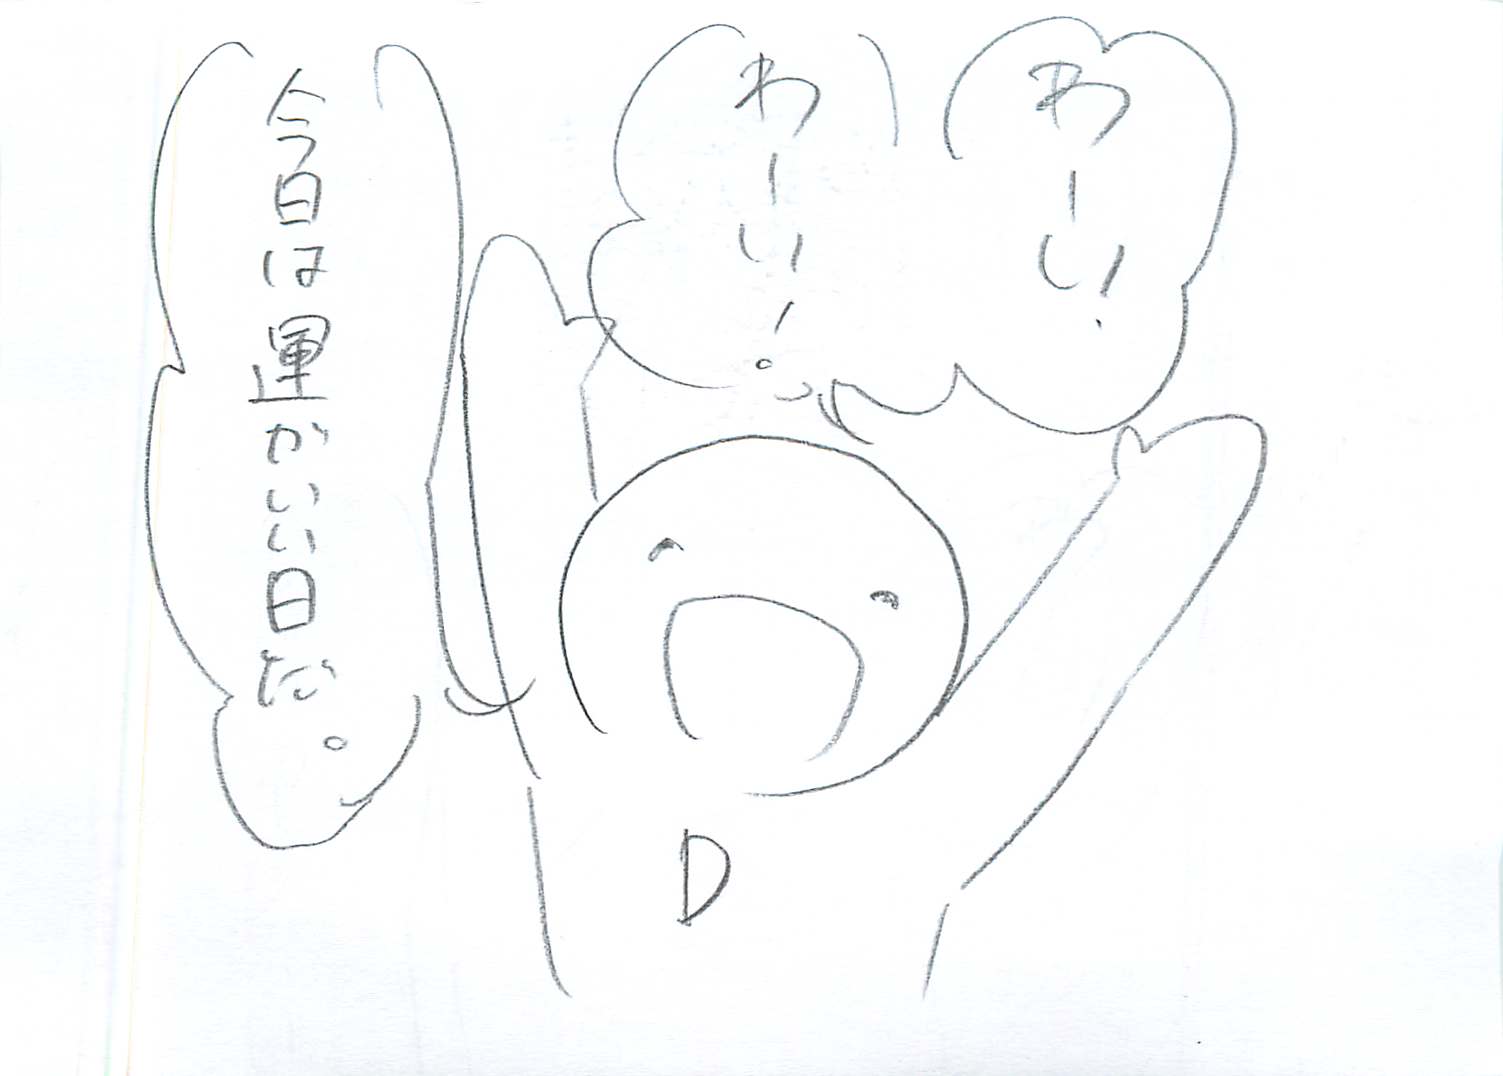 わーい!
わーい!
今日は運がいい日だ。
D